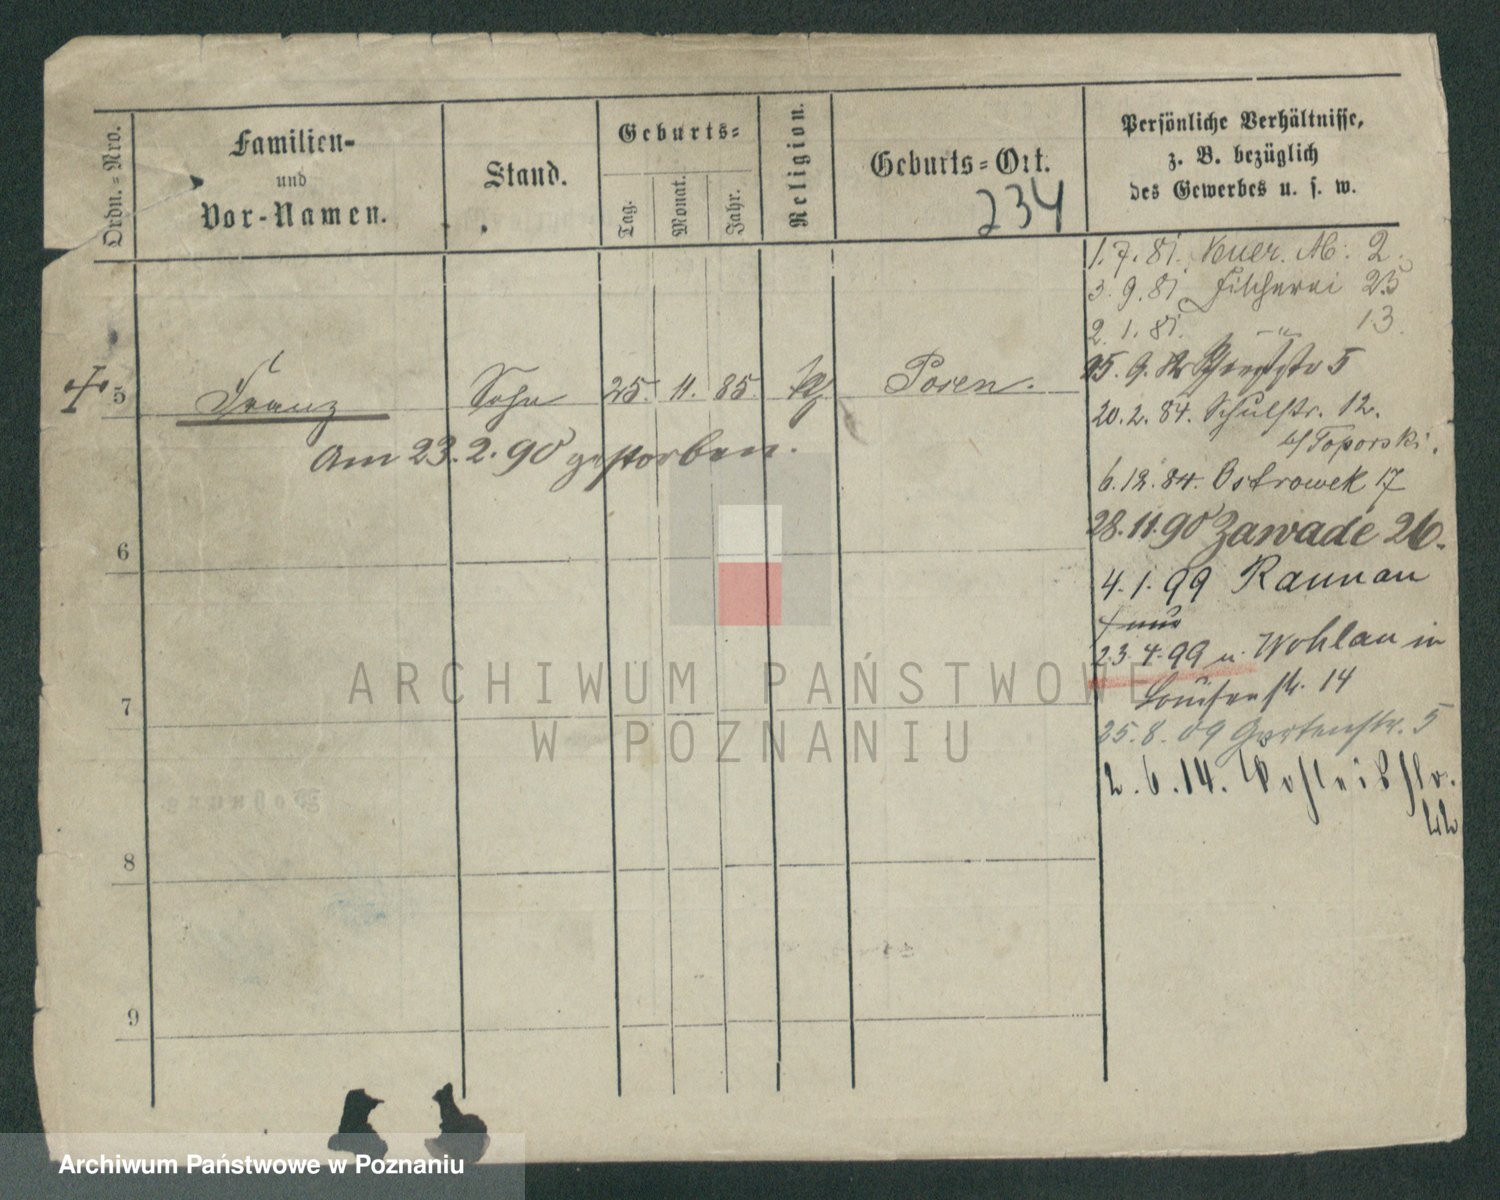 Ordn.-Nro.
Familien-
und
Vor-Namen.
Stand.
Geburts-
Tag.
Monat.
Jahr.
Religion.
Geburts-Ort.
234
Persönliche Verhältnisse,
z. B. bezüglich
des Gewerbes u. s. w.
1.7.81. Neuer M. 2.
3.9.81. Fischerei 25
2.1.81. -"- 13.
5 Franz Sohn 25. 11. 85. Posen.
Am 23.2.90 gestorben.
25.9. 5
20.2.84. Schulstr. 12.
Toporski.
6.12.84. Ostrowek 17
28.11.90 Zawade 26.
6
4.1.99 Raunau
23.4.99 n. Wohlau in
Louisenstr. 14
7
25.8.09 Gartenstr. 5
2.6.14.
8
9
ARCHIWUM PAŃSTWOWE
W POZNANIU
Archiwum Państwowe w Poznaniu